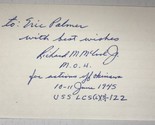 to: Eric Palmer
with best wishes
Richard M McCool Jr.
M.O.H.
for actions off Okinawa
10-11 June 1945
USS LCS(L)(3)-122